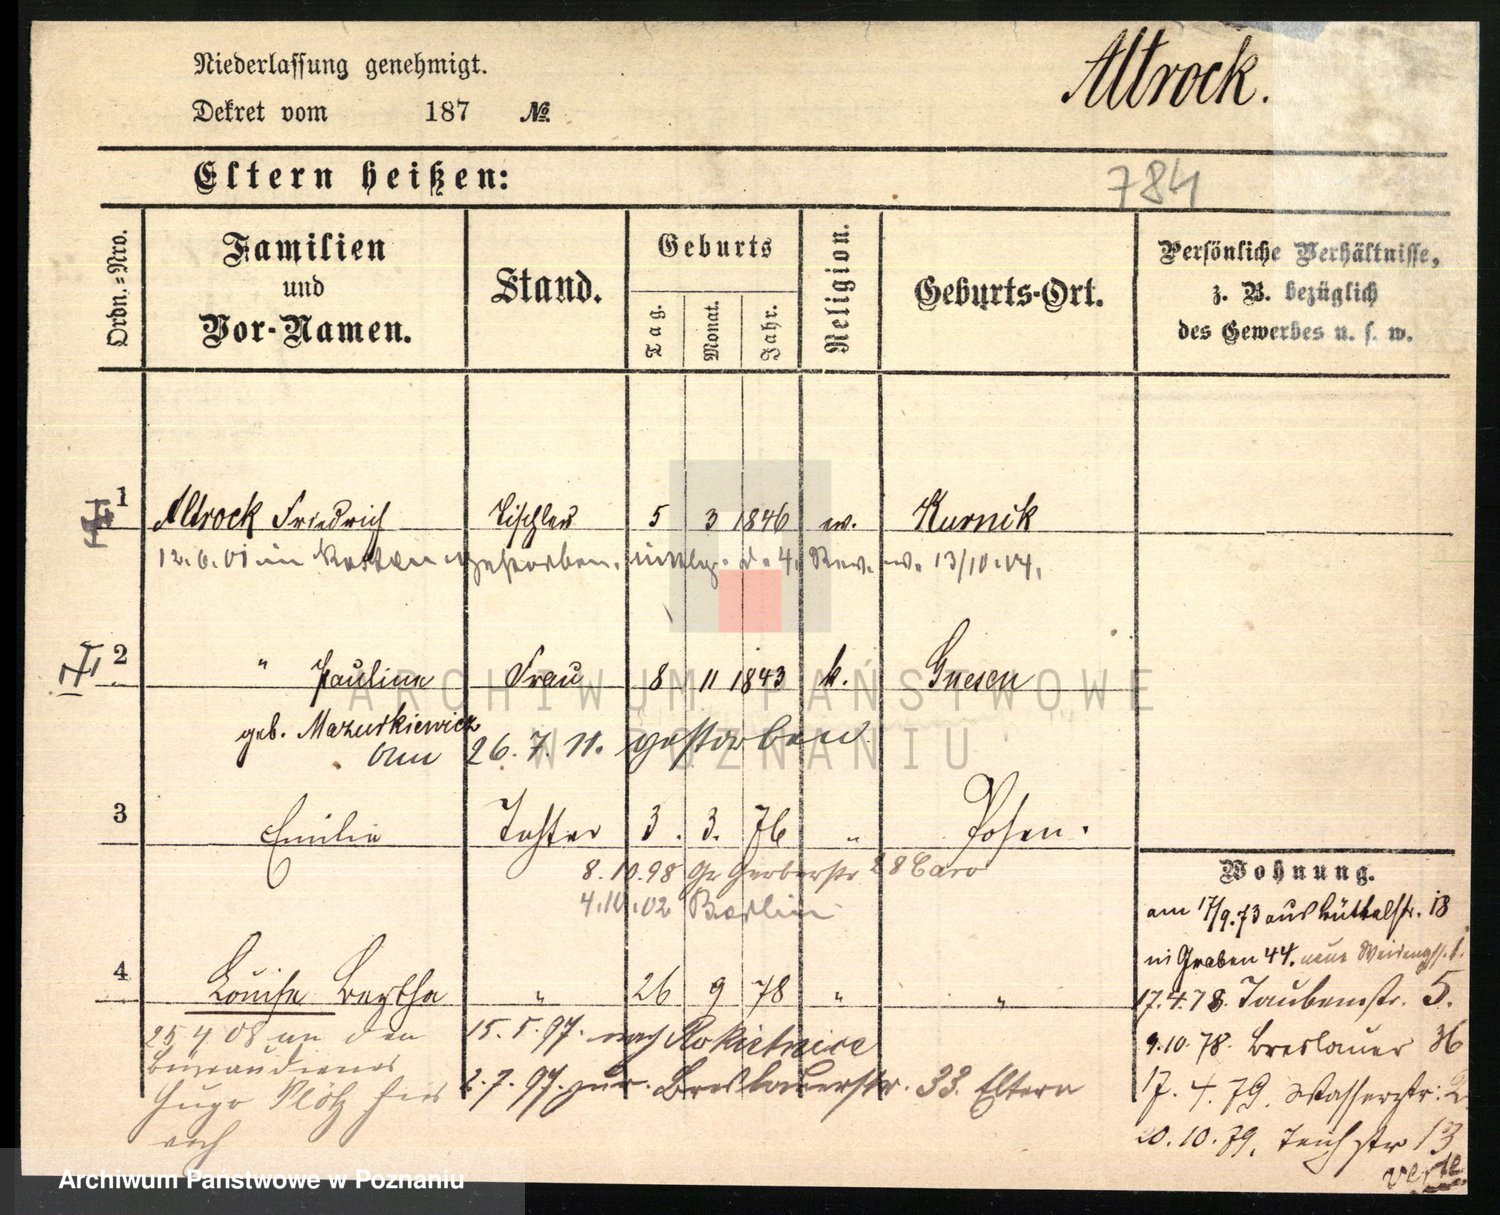 Niederlassung genehmigt.
Altrock.
Dekret vom 187 №
Eltern heißen:
784
Ordn.-Nro.
Familien und Vor-Namen.
Stand.
Geburts
Tag.
Monat.
Jahr.
Religion.
Geburts-Ort.
Persönliche Verhältnisse,
z. B. bezüglich
des Gewerbes u. s. w.
1 Altrock Friedrich Tischler 5 3 1846 ev. Kurnik
12.6.01 in gestorben. d. 4. Rev. 13/10.04.
2 " Pauline Frau 8 11 1843 k. Gnesen
geb. Mazurkiewicz
Am 26.7.11. gestorben.
3 Emilie Tochter 3. 3. 76 " Posen.
8.10.98 Gr Gerberstr 28 Caro
4.10.02 Berlin
4 Louise Bertha " 26 9 78 " "
25 4 08 an den
Bureaudiener
Hugo Plötz
15.5.97. nach Rokietnice
2.7.97. zur. Breslauerstr. 33. Eltern
Wohnung.
am 17/9.73 aus Büttelstr. 18
in Graben 44. neue
17.4.78. Taubenstr. 5.
9.10.78. Breslauer 36
17.4.79. Wasserstr. 2
20.10.79. Teichstr 13
verte
ARCHIWUM PAŃSTWOWE
W POZNANIU
Archiwum Państwowe w Poznaniu